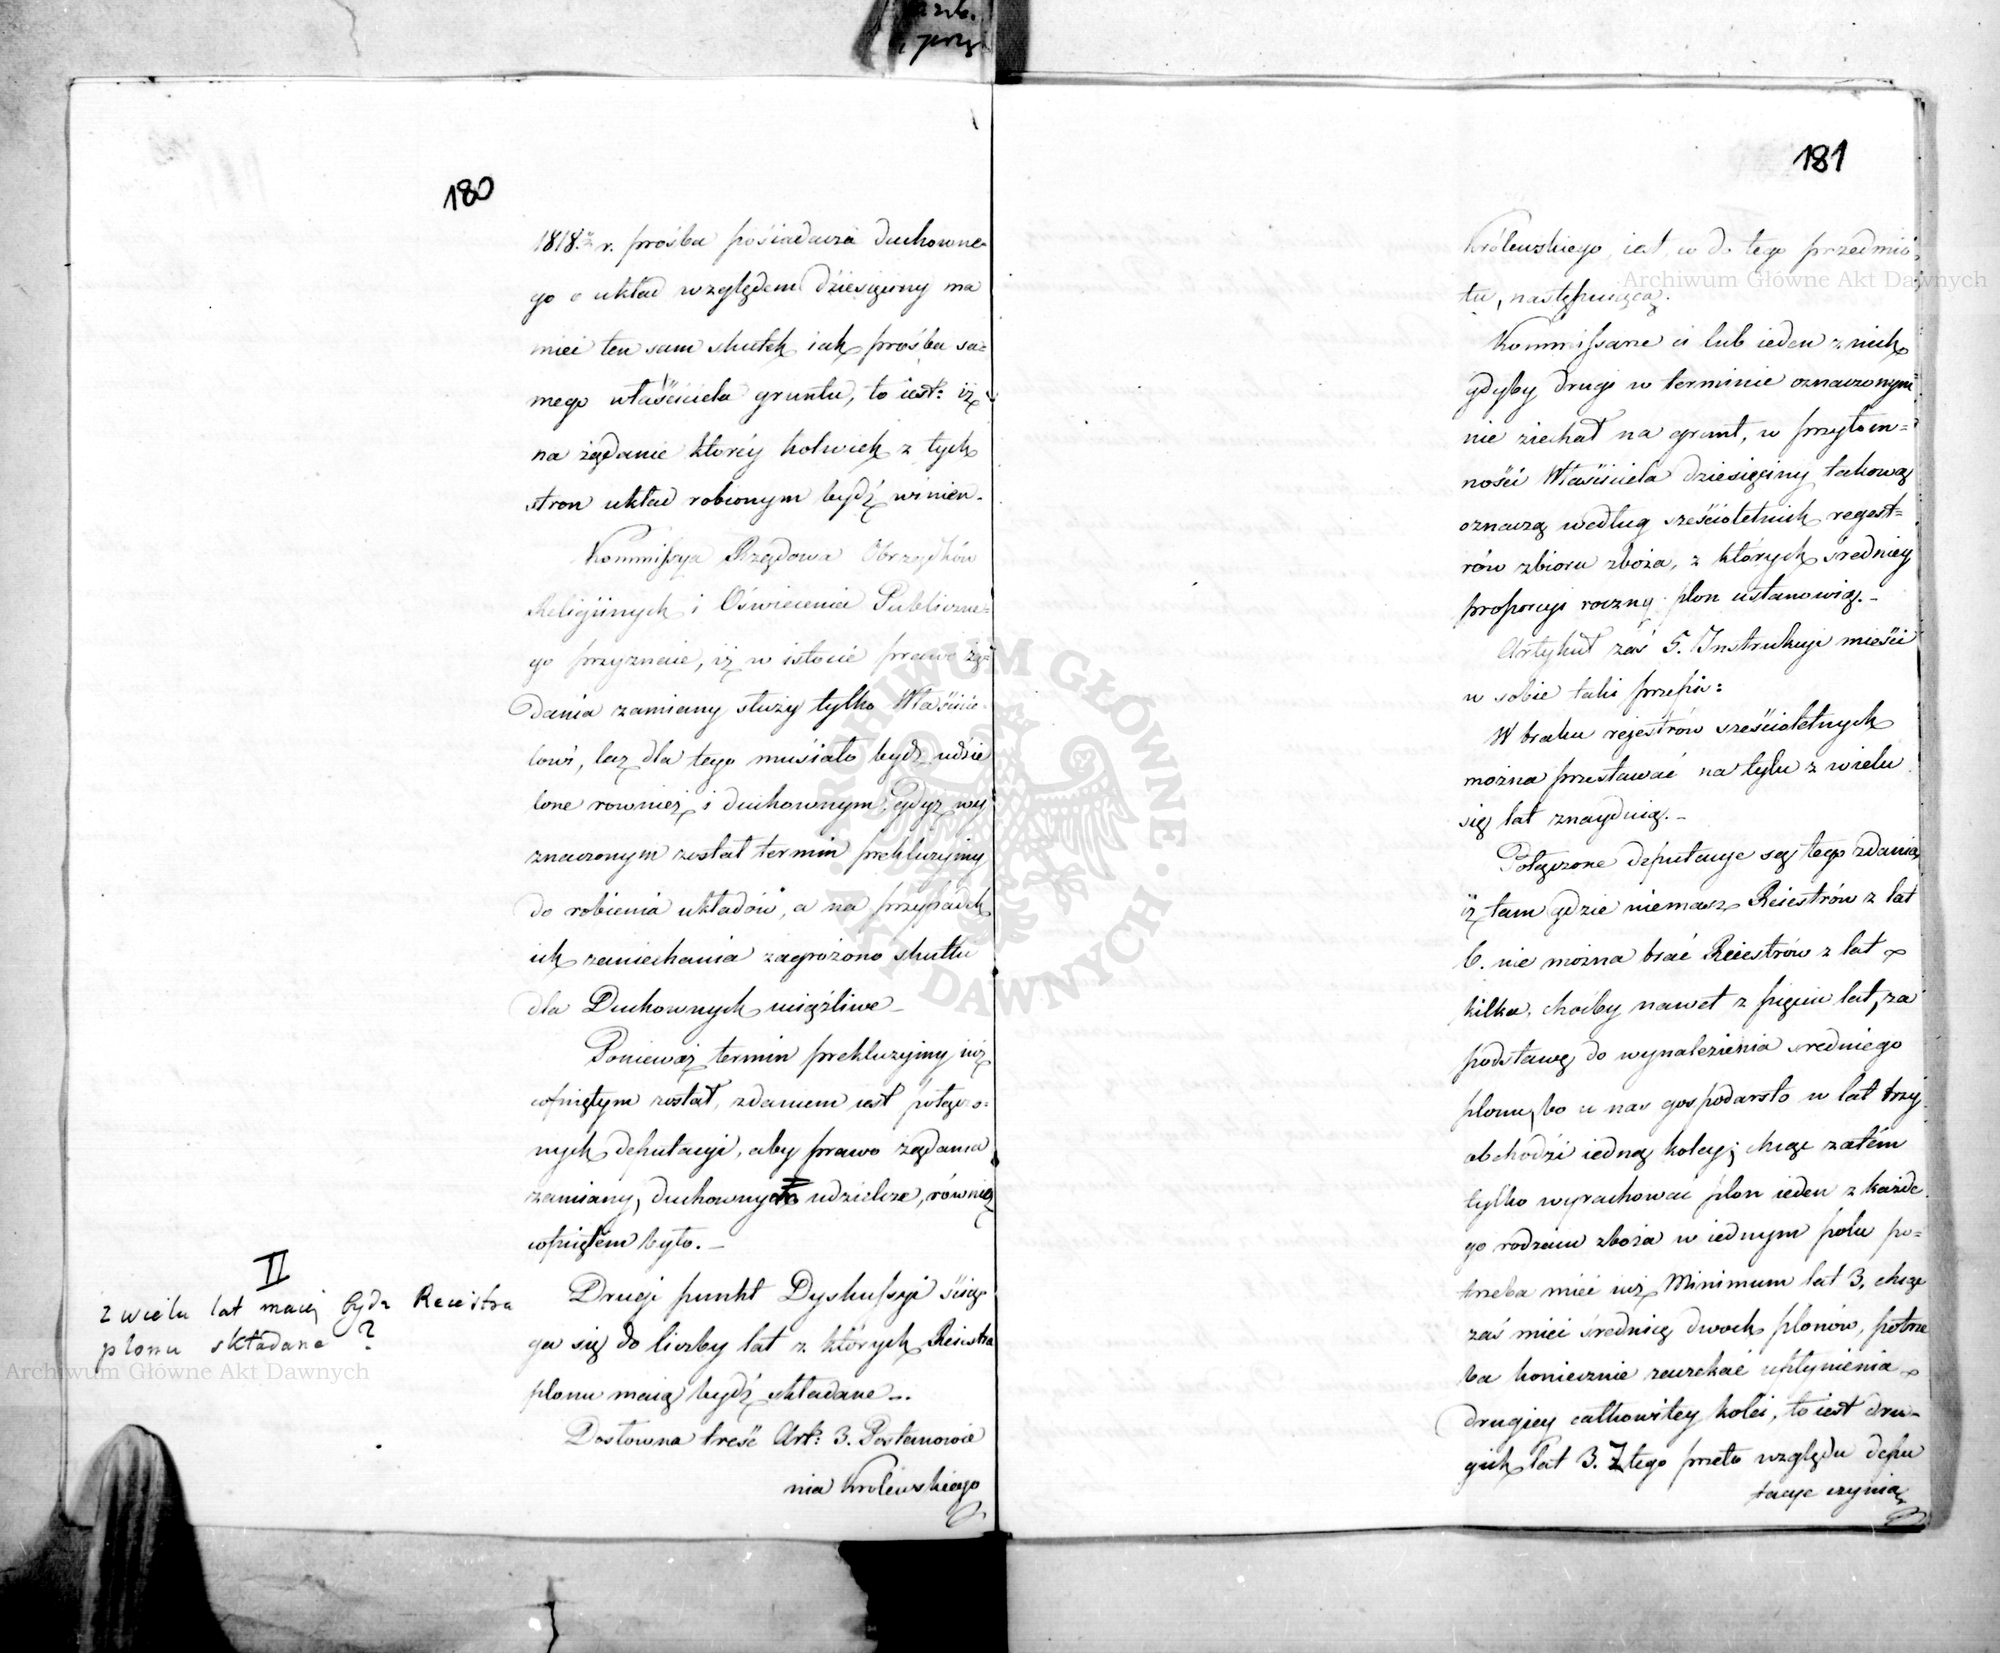 180
1818. r. prośba posiadacza duchowne-
go o układ względem dziesięciny ma
mieć ten sam skutek iak prośba sa-
mego właściciela gruntu, to iest: iż
na żądanie którey kolwiek z tych
stron układ robionym bydź winien.
Kommissya Rządowa Obrządków
Religiinych i Oświecenia Publiczne-
go przyznaie, iż w istocie prawo żą-
dania zamiany służy tylko Właścicie-
lowi, lecz dla tego musiało bydź udzie
lone rownież i duchownym, gdyż wy
znaczonym został termin prekluzyiny
do robienia układów, a na przypadek
ich zaniechania zagrożono skutki
dla Duchownych uciążliwe _
Ponieważ termin prekluzyiny iuż
cofniętym został, zdaniem iest połączo-
nych deputacyi, aby prawo żądania
zamiany, duchownym udzielone, równiez
cofniętem było. _
II
z wielu lat maią bydz Reiestra
plonu składane?
Drugi punkt Dyskussyi ścią
ga się do liczby lat z których Reiestra
plonu maią bydź składane _.
Dosłowna treść Art: 3. Postanowie
nia Królewskiego
181
Królewskiego, iest co do tego przedmio-
tu, następuiąca.
Kommissarze ci lub ieden z nich
gdyby drugi w terminie oznaczonym
nie ziechał na grunt, w przytom-
ności Właściciela dziesięciny takową
oznaczą według sześcioletnich regest-
rów zbioru zboża, z których średniey
proporcyi roczny plon ustanowią. _
Artykuł zaś 5. Instrukcyi mieści
w sobie taki przepis:
W braku rejestrów sześcioletnych
można przestawać na tylu z wielu
się lat znaydnią. _
Połączone deputacye są tego zdania
iż tam gdzie niemasz Reiestrów z lat
6. nie można brać Reiestrów z lat
kilka, choćby nawet z pięciu lat, za
podstawę do wynalezienia średniego
plonu, bo u nas gospodarsto w lat trzy
obchodzi iedną koley; chcąc zatém
tylko wyrachować plon ieden z każde
go rodzaiu zboża w iednym polu po-
trzeba mieć iuż Minimum lat 3. chcąc
zaś mieć średnią dwoch plonów, potrze
ba koniecznie zaczekać upłynienia
drugiey całkowitey kolei, to iest dru-
gich lat 3. Z tego przeto względu depu
tacye czynią
Archiwum Główne Akt Dawnych
Archiwum Główne Akt Dawnych
ARCHIWUM GŁÓWNE · AKT DAWNYCH ·